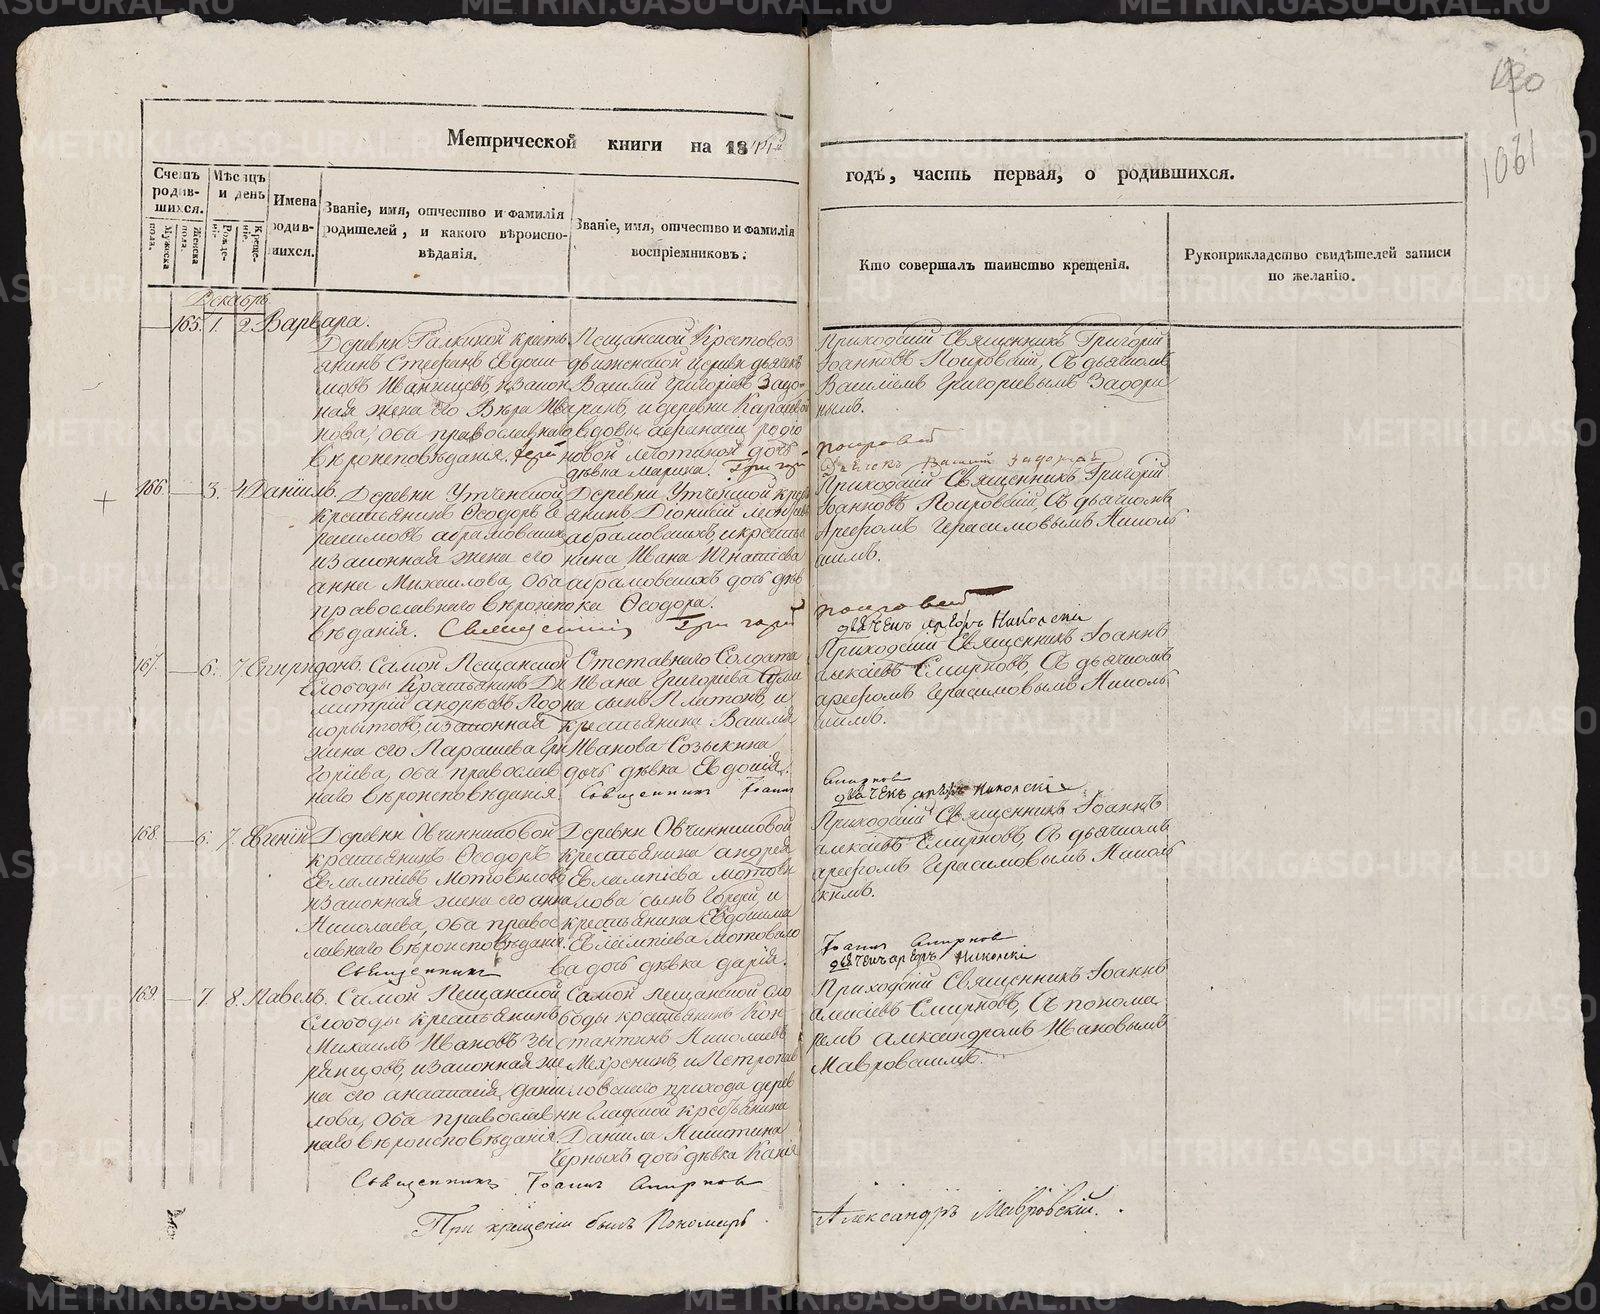 1061
Метрической книги на 18
годъ, часть первая, о родившихся.
Счетъ родив-шихся.
Мужеска пола.
Женска пола.
Мѣсяцъ и день
Рожде-нія.
Креще-нія.
Имена родив-шихся.
Званіе, имя, отчество и фамилія родителей, и какого вѣроиспо-вѣданія.
Званіе, имя, отчество и фамилія воспріемниковъ.
Кто совершалъ таинство крещенія.
Рукоприкладство свидѣтелей записи по желанію.
Декабрь
165. 1. 2. Варвара.
Деревни Галкиной кресть
янинъ Стефанъ Евдоки
мовъ Иванищевъ, и закон
ная жена его Вѣра Ива
нова, оба православнаго
вѣроисповѣданія.
Пещанской Крестовоз
движенской Церкви дьячекъ
Василій Григорьевъ Задо
ринъ, и деревни
вдовы
дочь
дѣвка Марина. Григорій
Приходскій Священникъ Григорій
Іоанновъ Покровскій, Съ дьячкомъ
Василіемъ Григорьевымъ Задори
нымъ.
Покровскій
Дьячекъ Василій Задоринъ
166 3. 4. Даніилъ.
Деревни Утченской
крестьянинъ Ѳеодоръ Ге
расимовъ Абрамовскихъ
и законная жена его
Анна Михаилова, Оба
православнаго вѣроиспо
вѣданія. Священникъ Григорій
Деревни Утченской крест
янинъ Діонисій
Абрамовскихъ, и кресть
нина Ивана Игнатіева
Абрамовскихъ дочь дѣв
ка Ѳеодора.
Приходскій Священникъ Григорій
Іоанновъ Покровскій, Съ дьячкомъ
Арефомъ Герасимовымъ Николь
скимъ.
Покровскій
дьячекъ Арефъ Никольскій
167. 6. 7. Спиридонъ.
Самой Пещанской
Слободы Крестьянинъ Ди
митрій Андреевъ Под
корытовъ, и законная
жена его Парасева Гри
горіева, оба православ
наго вѣроисповѣданія
Отставнаго Солдата
Ивана Григорьева
на сынъ Платонъ, и
крестьянина Василія
Иванова Созыкина
дочь дѣвка Евдокія.
Священникъ Іоаннъ
Приходскій Священникъ Іоаннъ
Алексіевъ Смирновъ, Съ дьячкомъ
Арефомъ Герасимовымъ Николь
скимъ.
Смирновъ
дьячекъ Арефъ Никольскій
168. 6. 7. Евгеній
Деревни Овчинниковой
крестьянинъ Ѳеодоръ
Евлампіевъ Мотовиловъ
и законная жена его Анна
Николаева, оба правос
лавнаго вѣроисповѣданія.
Священникъ
Деревни Овчинниковой
крестьянина Андрея
Евлампіева Мотови
лова сынъ Гордей, и
крестьянина Евдокима
Евлампіева Мотовило
ва дочь дѣвка Дарія.
Приходскій Священникъ Іоаннъ
Алексіевъ Смирновъ, Съ дьячкомъ
Арефомъ Герасимовымъ Николь
скимъ.
Іоаннъ Смирновъ
дьячекъ Арефъ Никольскій
169. 7. 8. Павелъ.
Самой Пещанской
Слободы крестьянинъ
Михаилъ Ивановъ Зы
рянцовъ, и законная же
на его Анастасія Дани
лова, Оба православ
наго вѣроисповѣданія.
Самой Пещанской Сло
боды крестьянинъ Кон
стантинъ Николаевъ
Мехренинъ, и Петропав
ловскаго прихода дерев
ни крестьянина
Даніила Никитина
Черныхъ дочь дѣвка
Приходскій Священникъ Іоаннъ
Алексіевъ Смирновъ, Съ понома
ремъ Александромъ Ивановымъ
Мавровскимъ.
Священникъ Іоаннъ Смирновъ
При крещеніи былъ Пономарь
Александръ Мавровскій.